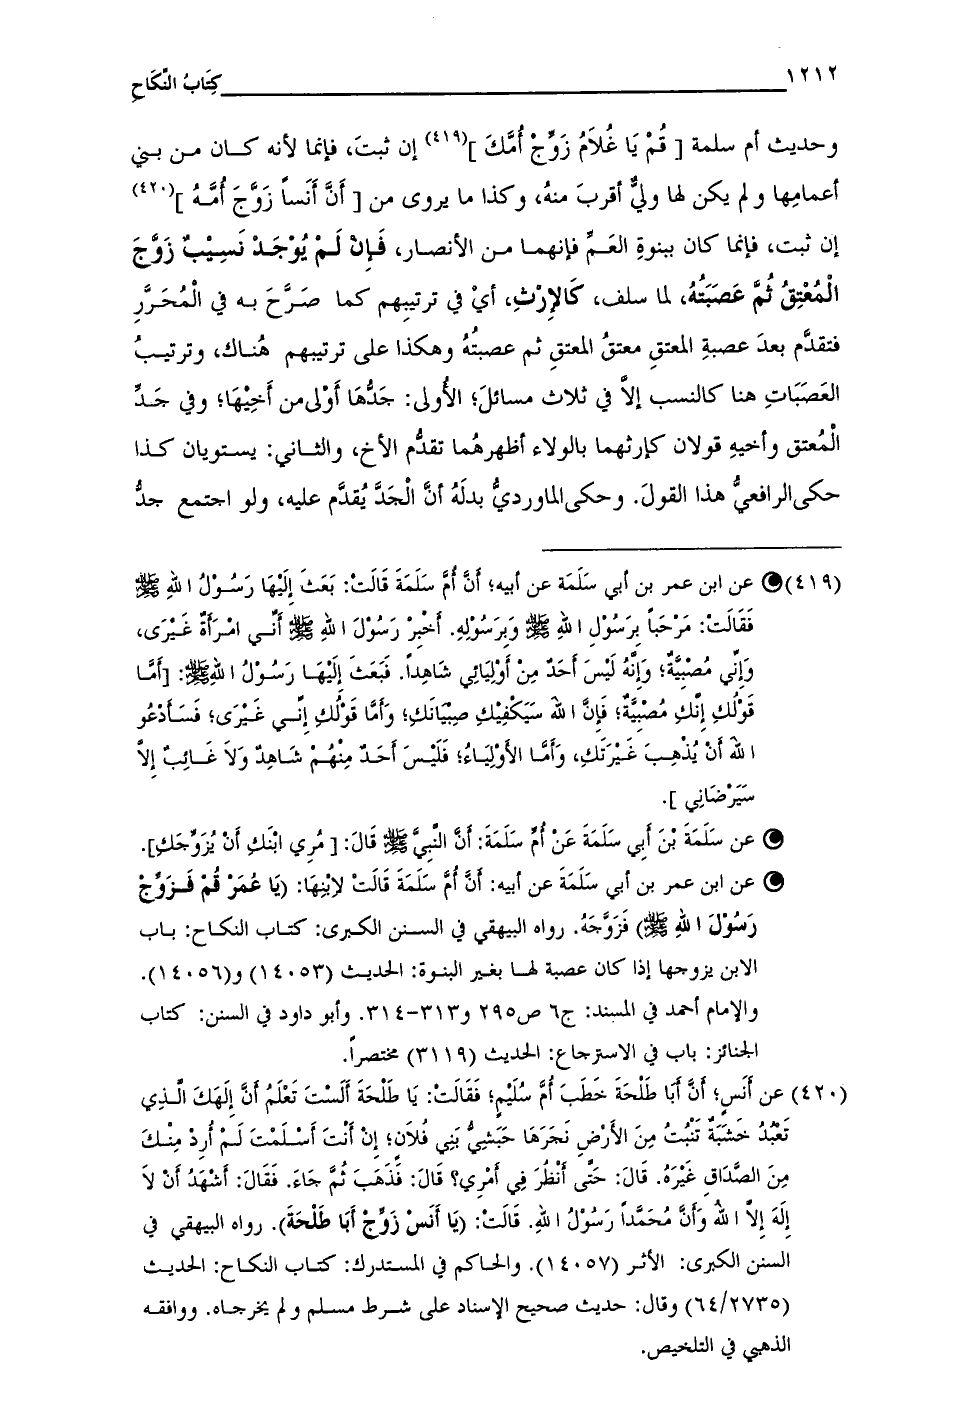 ١٢١٢ كِتَابُ النِّكَاحِ
وحديث أم سلمة [ قُمْ يَا غُلاَمُ زَوِّجْ أُمَّكَ ](٤١٩) إن ثبتَ، فإنما لأنه كان من بني
أعمامِها ولم يكن لها وليٌّ أقربَ منهُ، وكذا ما يروى من [ أَنَّ أَنَساً زَوَّجَ أُمَّهُ ](٤٢٠)
إن ثبت، فإنما كان ببنوةِ العَمِّ فإنهما من الأنصار، فَإِنْ لَمْ يُوْجَدْ نَسِيْبٌ زَوَّجَ
الْمُعْتِقُ ثُمَّ عَصَبَتُهُ، لما سلف، كَالإِرْثِ، أيْ في ترتيبهم كما صَرَّحَ به في الْمُحَرَّرِ
فتقدَّم بعدَ عصبةِ المعتقِ معتقُ المعتقِ ثم عصبتُهُ وهكذا على ترتيبهم هُناك، وترتيبُ
العَصَبَاتِ هنا كالنسب إلاَّ في ثلاث مسائلَ؛ الأُولى: جَدُّهَا أَوْلى من أَخِيْهَا؛ وفي جَدِّ
الْمُعتق وأخيهِ قولان كإرثهما بالولاء أظهرهُما تقدُّم الأخ، والثاني: يستويان كذا
حكى الرافعيُّ هذا القولَ. وحكى الماورديُّ بدلَهُ أنَّ الْجَدَّ يُقدَّم عليه، ولو اجتمع جدُّ
(٤١٩) عن ابن عمر بن أبي سَلَمَة عن أبيه؛ أَنَّ أُمَّ سَلَمَةَ قَالَتْ: بَعَثَ إِلَيْهَا رَسُوْلُ اللهِ ﷺ
فَقَالَتْ: مَرْحَباً بِرَسُوْلِ اللهِ ﷺ وَبِرَسُوْلِهِ. أَخْبِرْ رَسُوْلَ اللهِ ﷺ أَنِّي امْرَأَةٌ غَيْرَى،
وَإِنِّي مُصْبِيَّةٌ؛ وَإِنَّهُ لَيْسَ أَحَدٌ مِنْ أَوْلِيَائِي شَاهِداً. فَبَعَثَ إِلَيْهَا رَسُوْلُ اللهِ ﷺ: [أَمَّا
قَوْلُكِ إِنَّكِ مُصْبِيَّةٌ؛ فَإِنَّ اللهَ سَيَكْفِيْكِ صِبْيَانَكِ؛ وَأَمَّا قَوْلُكِ إِنِّي غَيْرَى؛ فَسَأَدْعُو
اللهَ أَنْ يُذْهِبَ غَيْرَتَكِ، وَأَمَّا الأَوْلِيَاءُ؛ فَلَيْسَ أَحَدٌ مِنْهُمْ شَاهِدٌ وَلاَ غَائِبٌ إِلاَّ
سَيَرْضَانِي ].
عن سَلَمَةَ بْنَ أَبِي سَلَمَةَ عَنْ أُمِّ سَلَمَةَ: أَنَّ النَّبِيَّ ﷺ قَالَ: [ مُرِي ابْنَكِ أَنْ يُزَوِّجَكِ].
عن ابن عمر بن أبي سَلَمَةَ عن أبيه: أَنَّ أُمَّ سَلَمَةَ قَالَتْ لاِبْنِهَا: (يَا عُمَرَ قُمْ فَزَوِّجْ
رَسُوْلَ اللهِ ﷺ) فَزَوَّجَهُ. رواه البيهقي في السنن الكبرى: كتاب النكاح: باب
الابن يزوجها إذا كان عصبة لها بغير البنوة: الحديث (١٤٠٥٣) و(١٤٠٥٦).
والإمام أحمد في المسند: ج٦ ص٢٩٥ و٣١٣-٣١٤. وأبو داود في السنن: كتاب
الجنائز: باب في الاسترجاع: الحديث (٣١١٩) مختصراً.
(٤٢٠) عن أَنَسٍ؛ أَنَّ أَبَا طَلْحَةَ خَطَبَ أُمَّ سُلَيْمٍ؛ فَقَالَتْ: يَا طَلْحَةَ أَلَسْتَ تَعْلَمُ أَنَّ إِلَهَكَ الَّذِي
تَعْبُدُ خَشَبَةٌ تَنْبُتُ مِنَ الأَرْضِ نَجَرَهَا حَبَشِيُّ بَنِي فُلاَنٍ؛ إِنْ أَنْتَ أَسْلَمْتَ لَمْ أُرِدْ مِنْكَ
مِنَ الصَّدَاقِ غَيْرَهُ. قَالَ: حَتَّى أَنْظُرَ فِي أَمْرِي؟ قَالَ: فَذَهَبَ ثُمَّ جَاءَ. فَقَالَ: أَشْهَدُ أَنْ لاَ
إِلَهَ إِلاَّ اللهُ وَأَنَّ مُحَمَّداً رَسُوْلُ اللهِ. قَالَتْ: (يَا أَنَسُ زَوِّجْ أَبَا طَلْحَةَ). رواه البيهقي في
السنن الكبرى: الأثر (١٤٠٥٧). والحاكم في المستدرك: كتاب النكاح: الحديث
(٦٤/٢٧٣٥) وقال: حديث صحيح الإسناد على شرط مسلم ولم يخرجاه. ووافقه
الذهبي في التلخيص.